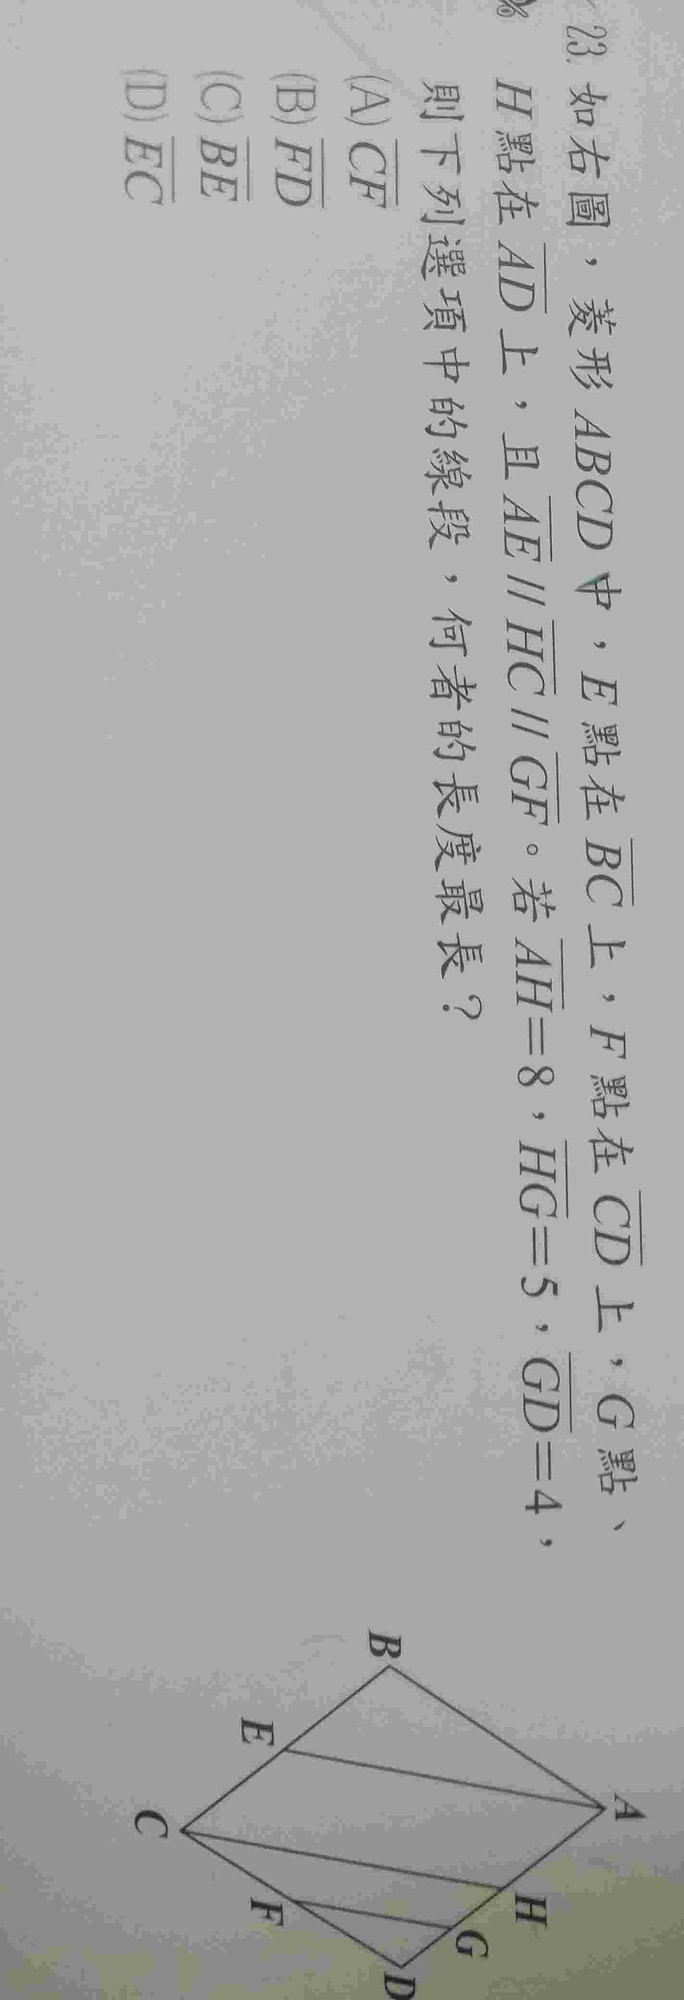 23. 如右圖，菱形 ABCD 中，E 點在 BC 上，F 點在 CD 上，G 點、
% H 點在 AD 上，且 AE // HC // GF。若 AH=8，HG=5，GD=4，
則下列選項中的線段，何者的長度最長？
(A) CF
(B) FD
(C) BE
(D) EC
A
B
E
H
C
F
G
D